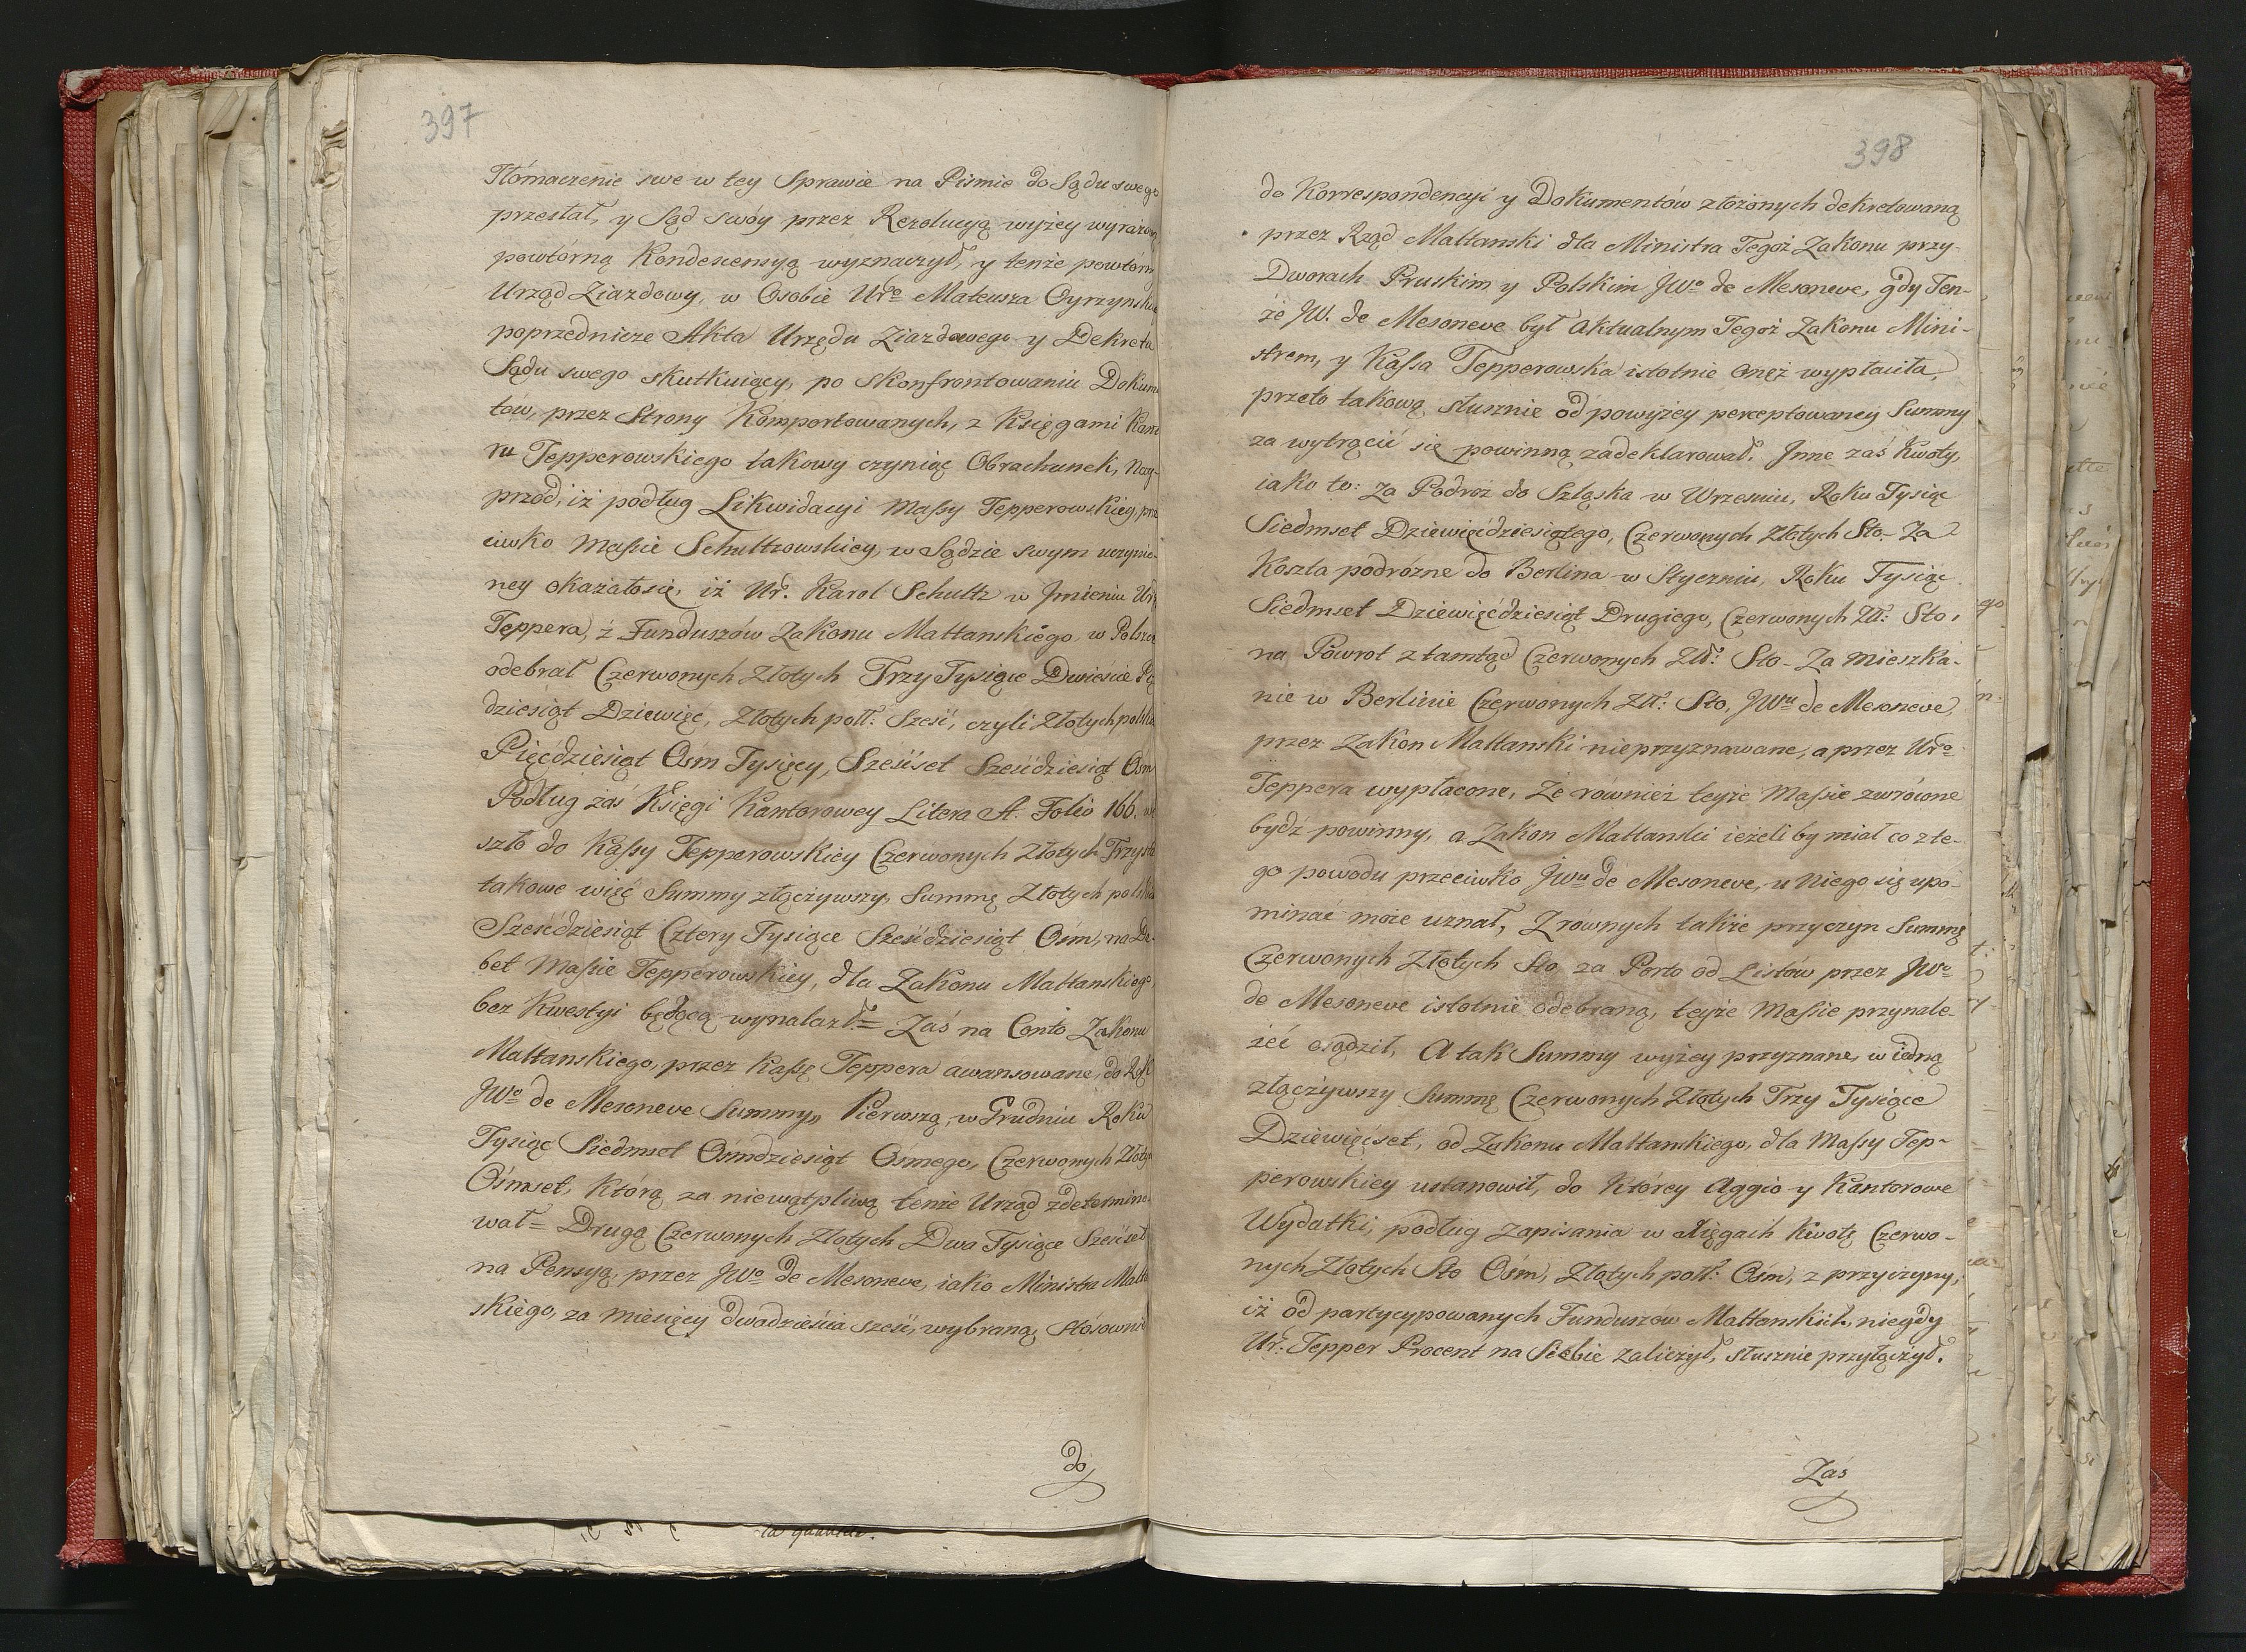 397
Tłómaczenie swe w tey Sprawie na Piśmie do Sądu swego
przesłał, y Sąd swóy przez Rezolucyą wyżey wyrażon
powtórną Kondescensyą wyznaczył, y tenże powtórn
Urząd Ziazdowy, w Osobie Uro Mateusza Cyrzynskie
poprzednicze Akta Urzędu Ziazdowego y Dekreta
Sądu swego skutkuiący, po skonfrontowaniu Dokume
tów, przez Strony Komportowanych, z Księgami Kanto
ru Tepperowskiego takowy czyniąc Obrachunek, Nay-
przód, iż podług Likwidacyi Massy Tepperowskiey, prze
ciwko Massie Schultzowskiey, w Sądzie swym uczynio-
ney okazało się, iż Ur. Karol Schultz w Jmieniu Ur
Teppera, z Funduszów Zakonu Maltanskiego, w Polszcze
odebrał Czerwonych Złotych Trzy Tysiące Dwieście Pię
dziesiąt Dziewięć, Złotych poll: Sześć, czyli Złotych polski
Pięćdziesiąt Ośm Tysięcy, Sześćset Sześćdziesiąt Ośm
Podług zaś Księgi Kantorowey Litera A. Folio 166. we
szło do Kassy Tepperowskiey Czerwonych Złotych Trzysta
takowe więc Summy złączywszy, Summę Złotych polskich
Sześćdziesiąt Cztery Tysiące Sześćdziesiąt Ośm, na De-
bet Massie Tepperowskiey, dla Zakonu Maltanskiego,
bez Kwestyi będącą wynalazł= Zaś na Conto Zakonu
Maltanskiego, przez Kassę Teppera awansowane, do Rąk
JWo de Mesoneve Summy, Pierwszą, w Grudniu Roku
Tysiąc Siedmset Ośmdziesiąt Ósmego, Czerwonych Złoty
Ośmset, którą za niewątpliwą tenże Urząd zdetermino-
wał= Drugą Czerwonych Złotych Dwa Tysiące Sześćset
na Pensyą, przez JWo de Mesoneve, iako Ministra Malta
skiego, za Miesięcy dwadzieścia sześć, wybraną, stósownie
do
398
do Korrespondencyi y Dokumentów złożonych dekretowaną
przez Rząd Maltanski dla Ministra Tegoż Zakonu przy-
Dworach Pruskim y Polskim JWo de Mesoneve, gdy Ten-
że JW. de Mesoneve był Aktualnym Tegoż Zakonu Mini-
strem, y Kassa Tepperowska istotnie Onęż wypłaciła,
przeto takową słusznie od powyżey perceptowaney Summy
za wytrącić się powinną zadeklarował. Jnne zaś Kwoty,
iako to: za Podróż do Szląska w Wrześniu, Roku Tysiąc
Siedmset Dziewięćdziesiątego, Czerwonych Złotych Sto- Za
Koszta podróżne do Berlina w Styczniu, Roku Tysiąc
Siedmset Dziewięćdziesiąt Drugiego, Czerwonych Zł: Sto,
na Powrot ztamtąd Czerwonych Zł: Sto- Za mieszka-
nie w Berlinie Czerwonych Zł: Sto, JWu de Mesoneve,
przez Zakon Maltanski nieprzyznawane, a przez Uro
Teppera wypłacone, Że również teyże Massie zwrócone
bydź powinny, a Zakon Maltanski ieżeli by miał co z te-
go powodu przeciwko JWu de Mesoneve, u Niego się upo-
minać może uznał, Z równych także przyczyn Summę
Czerwonych Złotych Sto za Porto od Listów przez JWo
de Mesoneve istotnie odebraną, teyże Massie przynale-
żeć osądził, A tak Summy wyżey przyznane, w iedną
złączywszy Summę Czerwonych Złotych Trzy Tysiące
Dziewięćset, od Zakonu Maltanskiego, dla Massy Tep-
perowskiey ustanowił, do którey Aggio y Kantorowe
Wydatki, podług zapisania w xięgach kwotę Czerwo-
nych Złotych Sto Ośm, Złotych poll: Ośm, z przyczyny,
iż od partycypowanych Funduszów Maltanskich, niegdy
Ur. Tepper Procent na Siebie zaliczył, słusznie przyłączył.
Zaś